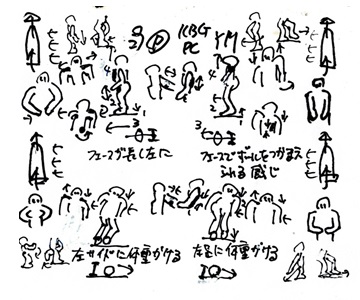 KBG
PC
YM
フェースが長し左に
フェースでボールをつかまえ
られる感じ
左サイドに体重かける
左足に体重かける